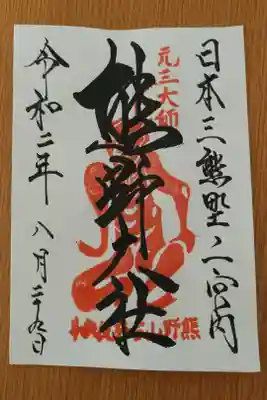 日本三熊野ノ一 宮内
元三大師
熊野大社
令和二年 八月二十九日